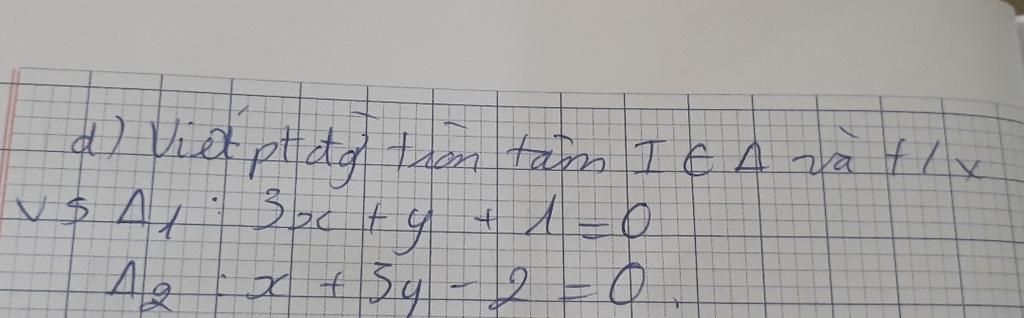 d) Viết pt đg tròn tâm I ∈ Δ và t/x
vs Δ1 : 3x + y + 1 = 0
Δ2 : x + 3y - 2 = 0.